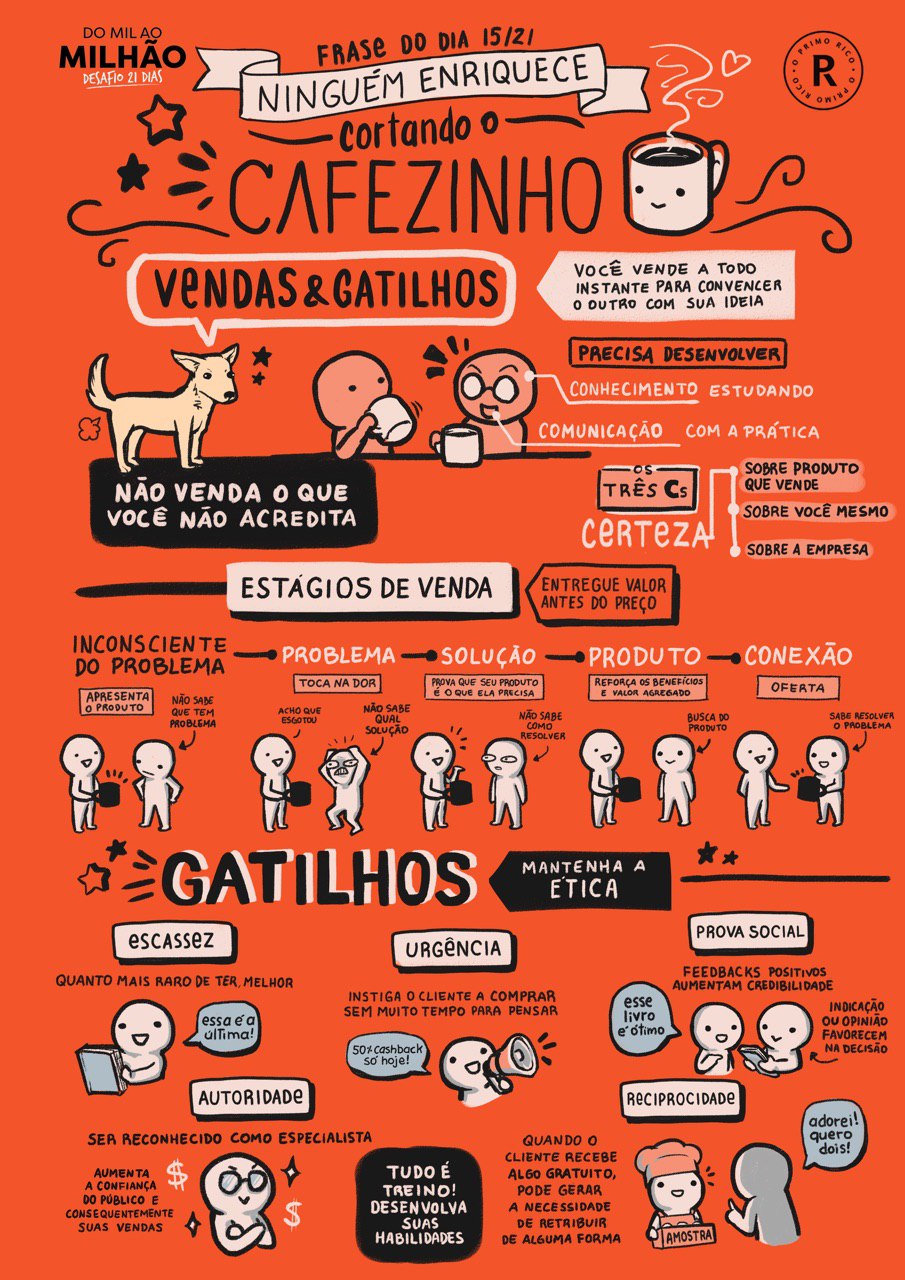 DO MIL AO
MILHÃO
DESAFIO 21 DIAS
FRASE DO DIA 15/21
NINGUÉM ENRIQUECE
cortando o
CAFEZINHO
O PRIMO RICO • O PRIMO RICO •
R
VENDAS & GATILHOS
VOCÊ VENDE A TODO
INSTANTE PARA CONVENCER
O OUTRO COM SUA IDEIA
PRECISA DESENVOLVER
CONHECIMENTO ESTUDANDO
COMUNICAÇÃO COM A PRÁTICA
NÃO VENDA O QUE
VOCÊ NÃO ACREDITA
OS
TRÊS Cs
CERTEZA
SOBRE PRODUTO
QUE VENDE
SOBRE VOCÊ MESMO
SOBRE A EMPRESA
ESTÁGIOS DE VENDA
ENTREGUE VALOR
ANTES DO PREÇO
INCONSCIENTE
DO PROBLEMA
APRESENTA
O PRODUTO
NÃO SABE
QUE TEM
PROBLEMA
PROBLEMA
TOCA NA DOR
ACHO QUE
ESGOTOU
NÃO SABE
QUAL
SOLUÇÃO
SOLUÇÃO
PROVA QUE SEU PRODUTO
É O QUE ELA PRECISA
NÃO SABE
COMO
RESOLVER
PRODUTO
REFORÇA OS BENEFÍCIOS
E VALOR AGREGADO
BUSCA DO
PRODUTO
CONEXÃO
OFERTA
SABE RESOLVER
O PROBLEMA
GATILHOS
MANTENHA A
ÉTICA
ESCASSEZ
QUANTO MAIS RARO DE TER, MELHOR
essa é a
última!
URGÊNCIA
INSTIGA O CLIENTE A COMPRAR
SEM MUITO TEMPO PARA PENSAR
50% cashback
só hoje!
PROVA SOCIAL
FEEDBACKS POSITIVOS
AUMENTAM CREDIBILIDADE
esse
livro
é ótimo
INDICAÇÃO
OU OPINIÃO
FAVORECEM
NA DECISÃO
AUTORIDADE
SER RECONHECIDO COMO ESPECIALISTA
AUMENTA
A CONFIANÇA
DO PÚBLICO E
CONSEQUENTEMENTE
SUAS VENDAS
$
$
TUDO É
TREINO!
DESENVOLVA
SUAS
HABILIDADES
RECIPROCIDADE
QUANDO O
CLIENTE RECEBE
ALGO GRATUITO,
PODE GERAR
A NECESSIDADE
DE RETRIBUIR
DE ALGUMA FORMA
AMOSTRA
adorei!
quero
dois!